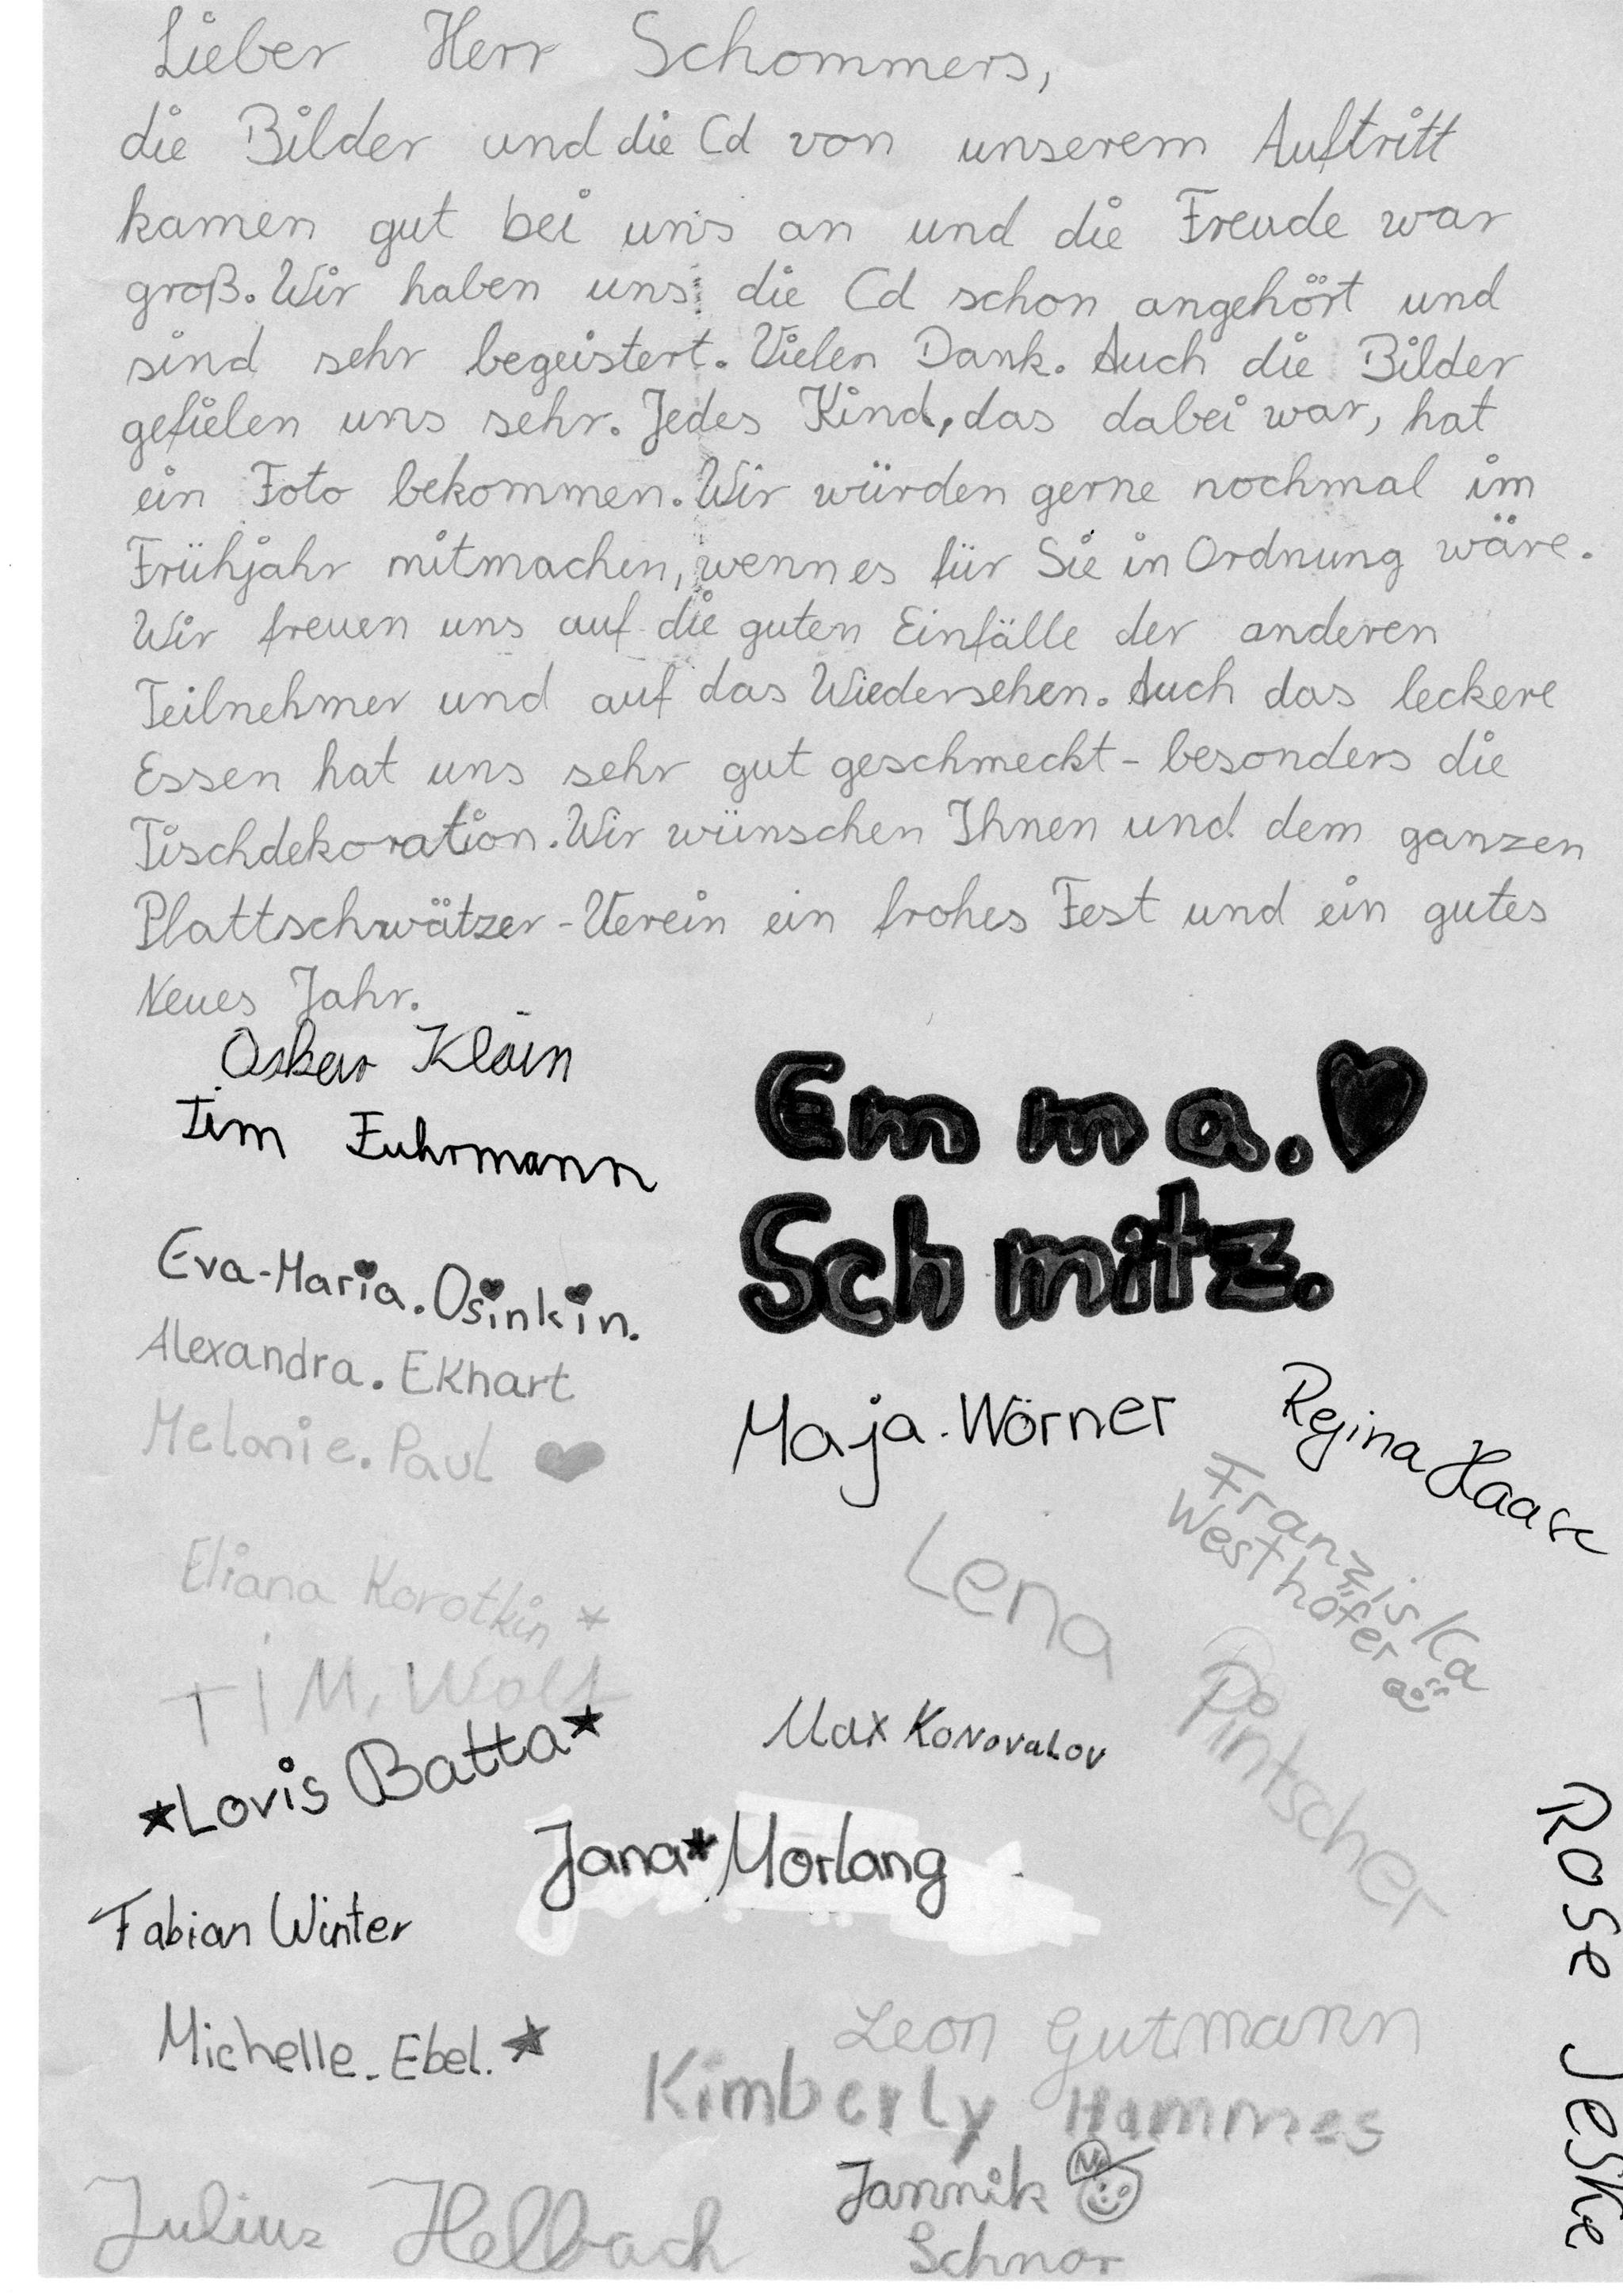 Lieber Herr Schommers,
die Bilder und die Cd von unserem Auftritt
kamen gut bei uns an und die Freude war
groß. Wir haben uns die Cd schon angehört und
sind sehr begeistert. Vielen Dank. Auch die Bilder
gefielen uns sehr. Jedes Kind, das dabei war, hat
ein Foto bekommen. Wir würden gerne nochmal im
Frühjahr mitmachen, wenn es für Sie in Ordnung wäre.
Wir freuen uns auf die guten Einfälle der anderen
Teilnehmer und auf das Wiedersehen. Auch das leckere
Essen hat uns sehr gut geschmeckt - besonders die
Tischdekoration. Wir wünschen Ihnen und dem ganzen
Plattschwätzer-Verein ein frohes Fest und ein gutes
Neues Jahr.
Oskar Klein
Tim Fuhrmann
Emma.
Schmitz.
Eva-Maria.Osinkin.
Alexandra.Ekhart
Melanie.Paul
Maja.Wörner
Regina Haase
Franziska
Westhöfer
Eliana Korotkin
Lena
Pintscher
TiM. Wolf
Lovis Batta
Max Konovalov
Jana Morlang
Rose Jeske
Fabian Winter
Michelle.Ebel.
Leon Gutmann
Kimberly Hammes
Jannik
Schnor
Julius Helbach